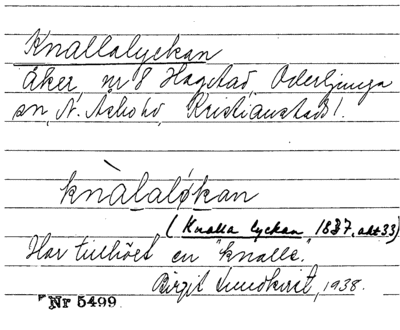 Knallalyckan
Åker, nr 8 Hagstad, Oderljunga
sn, N. Åsbo hd, Kristianstads l.
knàlalø̀kan
(Knalla lyckan 1837, akt 33)
Har tillhört en "knalle".
Birgit Lundkvist, 1938.
Nr 5499